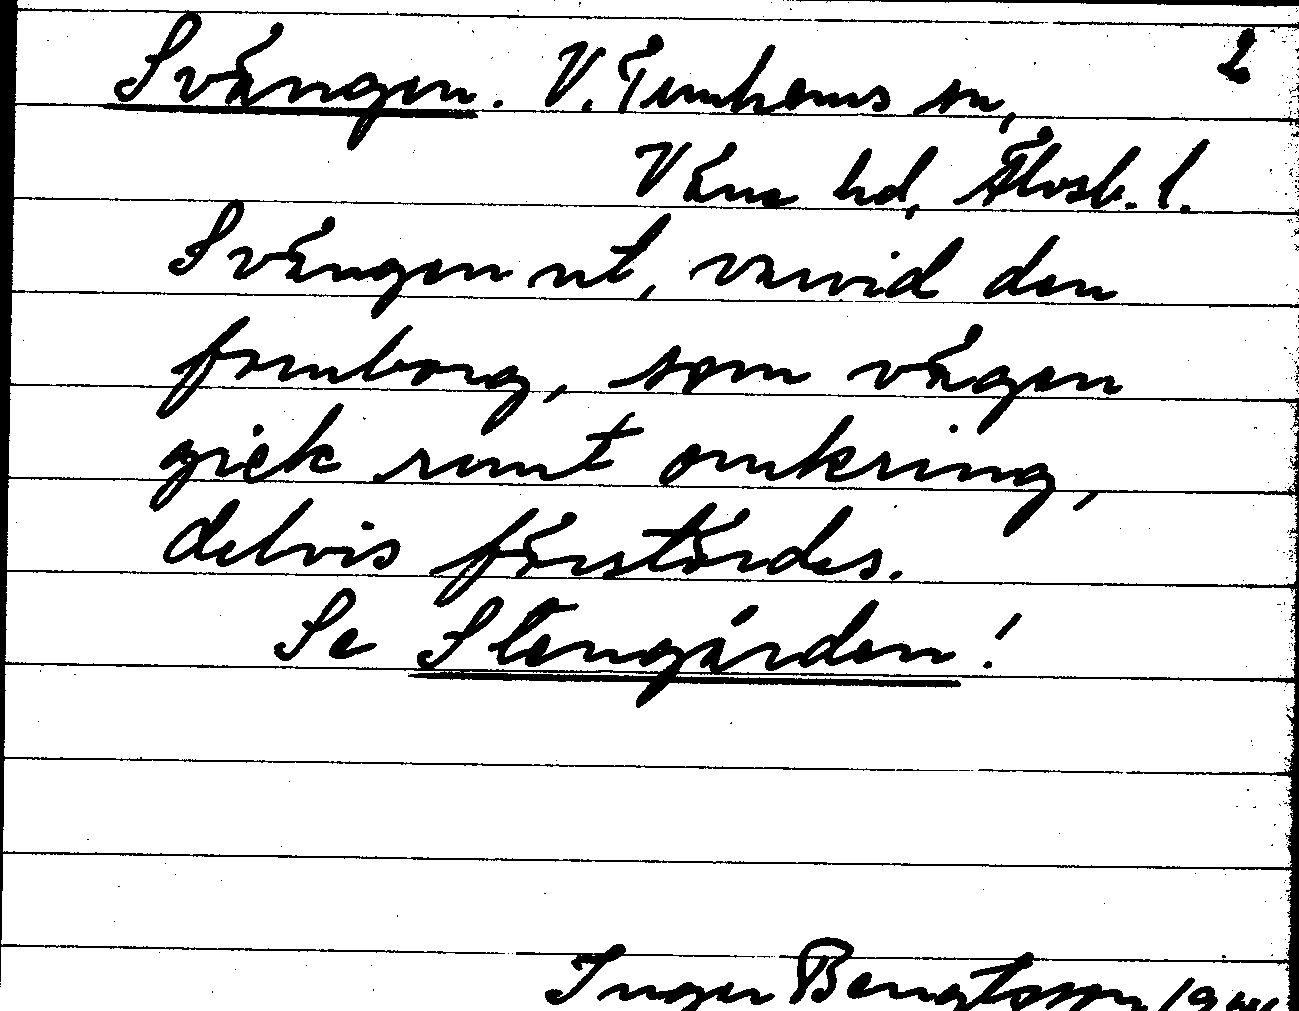 Svängen. V. Tunhems sn, 2
Väne hd, Älvsb. l.
Svängen ut, varvid den
fornborg, som vägen
gick runt omkring,
delvis förstördes.
Se Stengärden!
Inger Bengtsson